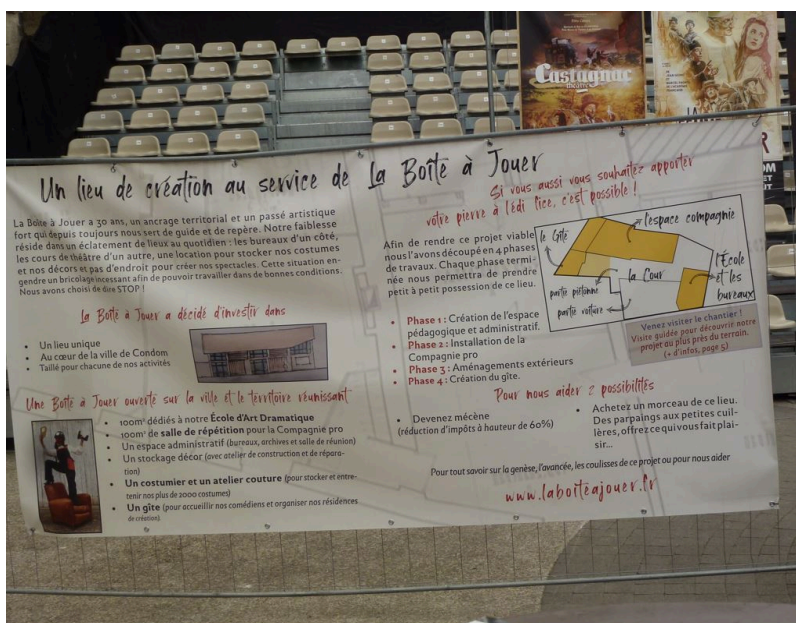 Castagnac
théâtre
Un lieu de création au service de La Boîte à Jouer
La Boite à Jouer a 30 ans, un ancrage territorial et un passé artistique
fort qui depuis toujours nous sert de guide et de repère. Notre faiblesse
réside dans un éclatement de lieux au quotidien : les bureaux d'un côté,
les cours de théâtre d'un autre, une location pour stocker nos costumes
et nos décors et pas d'endroit pour créer nos spectacles. Cette situation en-
gendre un bricolage incessant afin de pouvoir travailler dans de bonnes conditions.
Nous avons choisi de dire STOP !
La Boîte à Jouer a décidé d'investir dans
• Un lieu unique
• Au cœur de la ville de Condom
• Taillé pour chacune de nos activités
Une Boîte à Jouer ouverte sur la ville et le territoire réunissant
• 100m² dédiés à notre École d'Art Dramatique
• 100m² de salle de répétition pour la Compagnie pro
• Un espace administratif (bureaux, archives et salle de réunion)
• Un stockage décor (avec atelier de construction et de répara-
tion)
• Un costumier et un atelier couture (pour stocker et entre-
tenir nos plus de 2000 costumes)
• Un gîte (pour accueillir nos comédiens et organiser nos résidences
de création)
Si vous aussi vous souhaitez apporter
votre pierre à l'édi fice, c'est possible !
Afin de rendre ce projet viable
nous l'avons découpé en 4 phases
de travaux. Chaque phase termi-
née nous permettra de prendre
petit à petit possession de ce lieu.
• Phase 1 : Création de l'espace
pédagogique et administratif.
• Phase 2 : Installation de la
Compagnie pro
• Phase 3 : Aménagements extérieurs
• Phase 4 : Création du gîte.
le Gîte
l'espace compagnie
la Cour
l'École
et les
bureaux
partie piétonne
partie voiture
Venez visiter le chantier !
Visite guidée pour découvrir notre
projet au plus près du terrain.
(+ d'infos, page 5)
Pour nous aider 2 possibilités
• Devenez mécène
(réduction d'impôts à hauteur de 60%)
• Achetez un morceau de ce lieu.
Des parpaings aux petites cuil-
lères, offrez ce qui vous fait plai-
sir...
Pour tout savoir sur la genèse, l'avancée, les coulisses de ce projet ou pour nous aider
www.laboiteajouer.fr